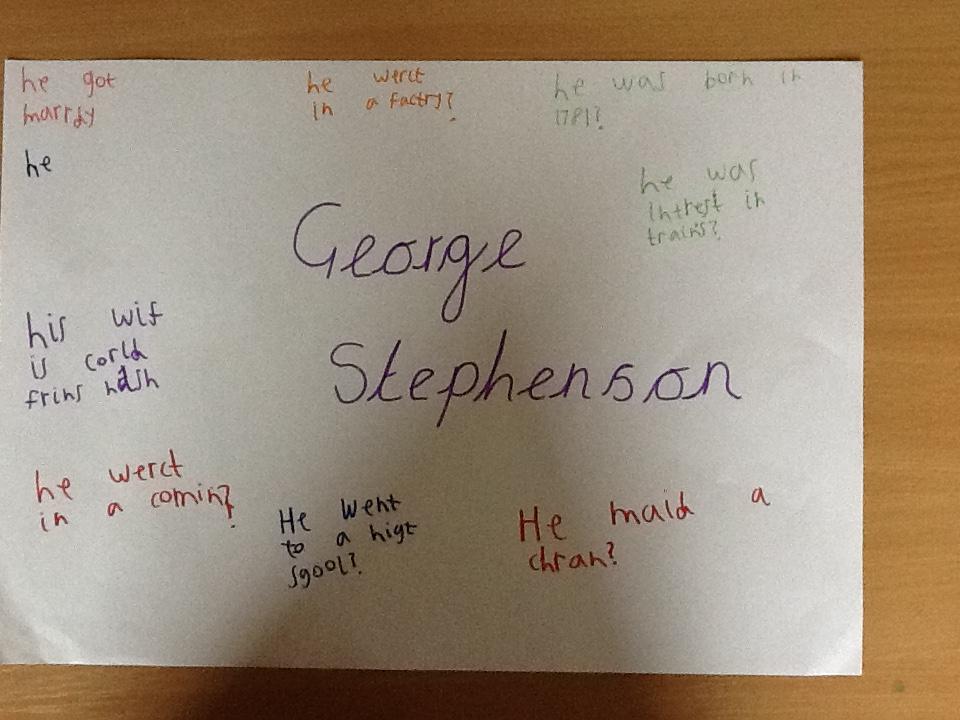 he got
marrdy
he werct
in a factry?
he was born in
1781?
he
he was
intrest in
trains?
George
Stephenson
his wif
is corld
frins hash
he werct
in a comin?
He went
to a higt
sgool?
He maid a
chran?